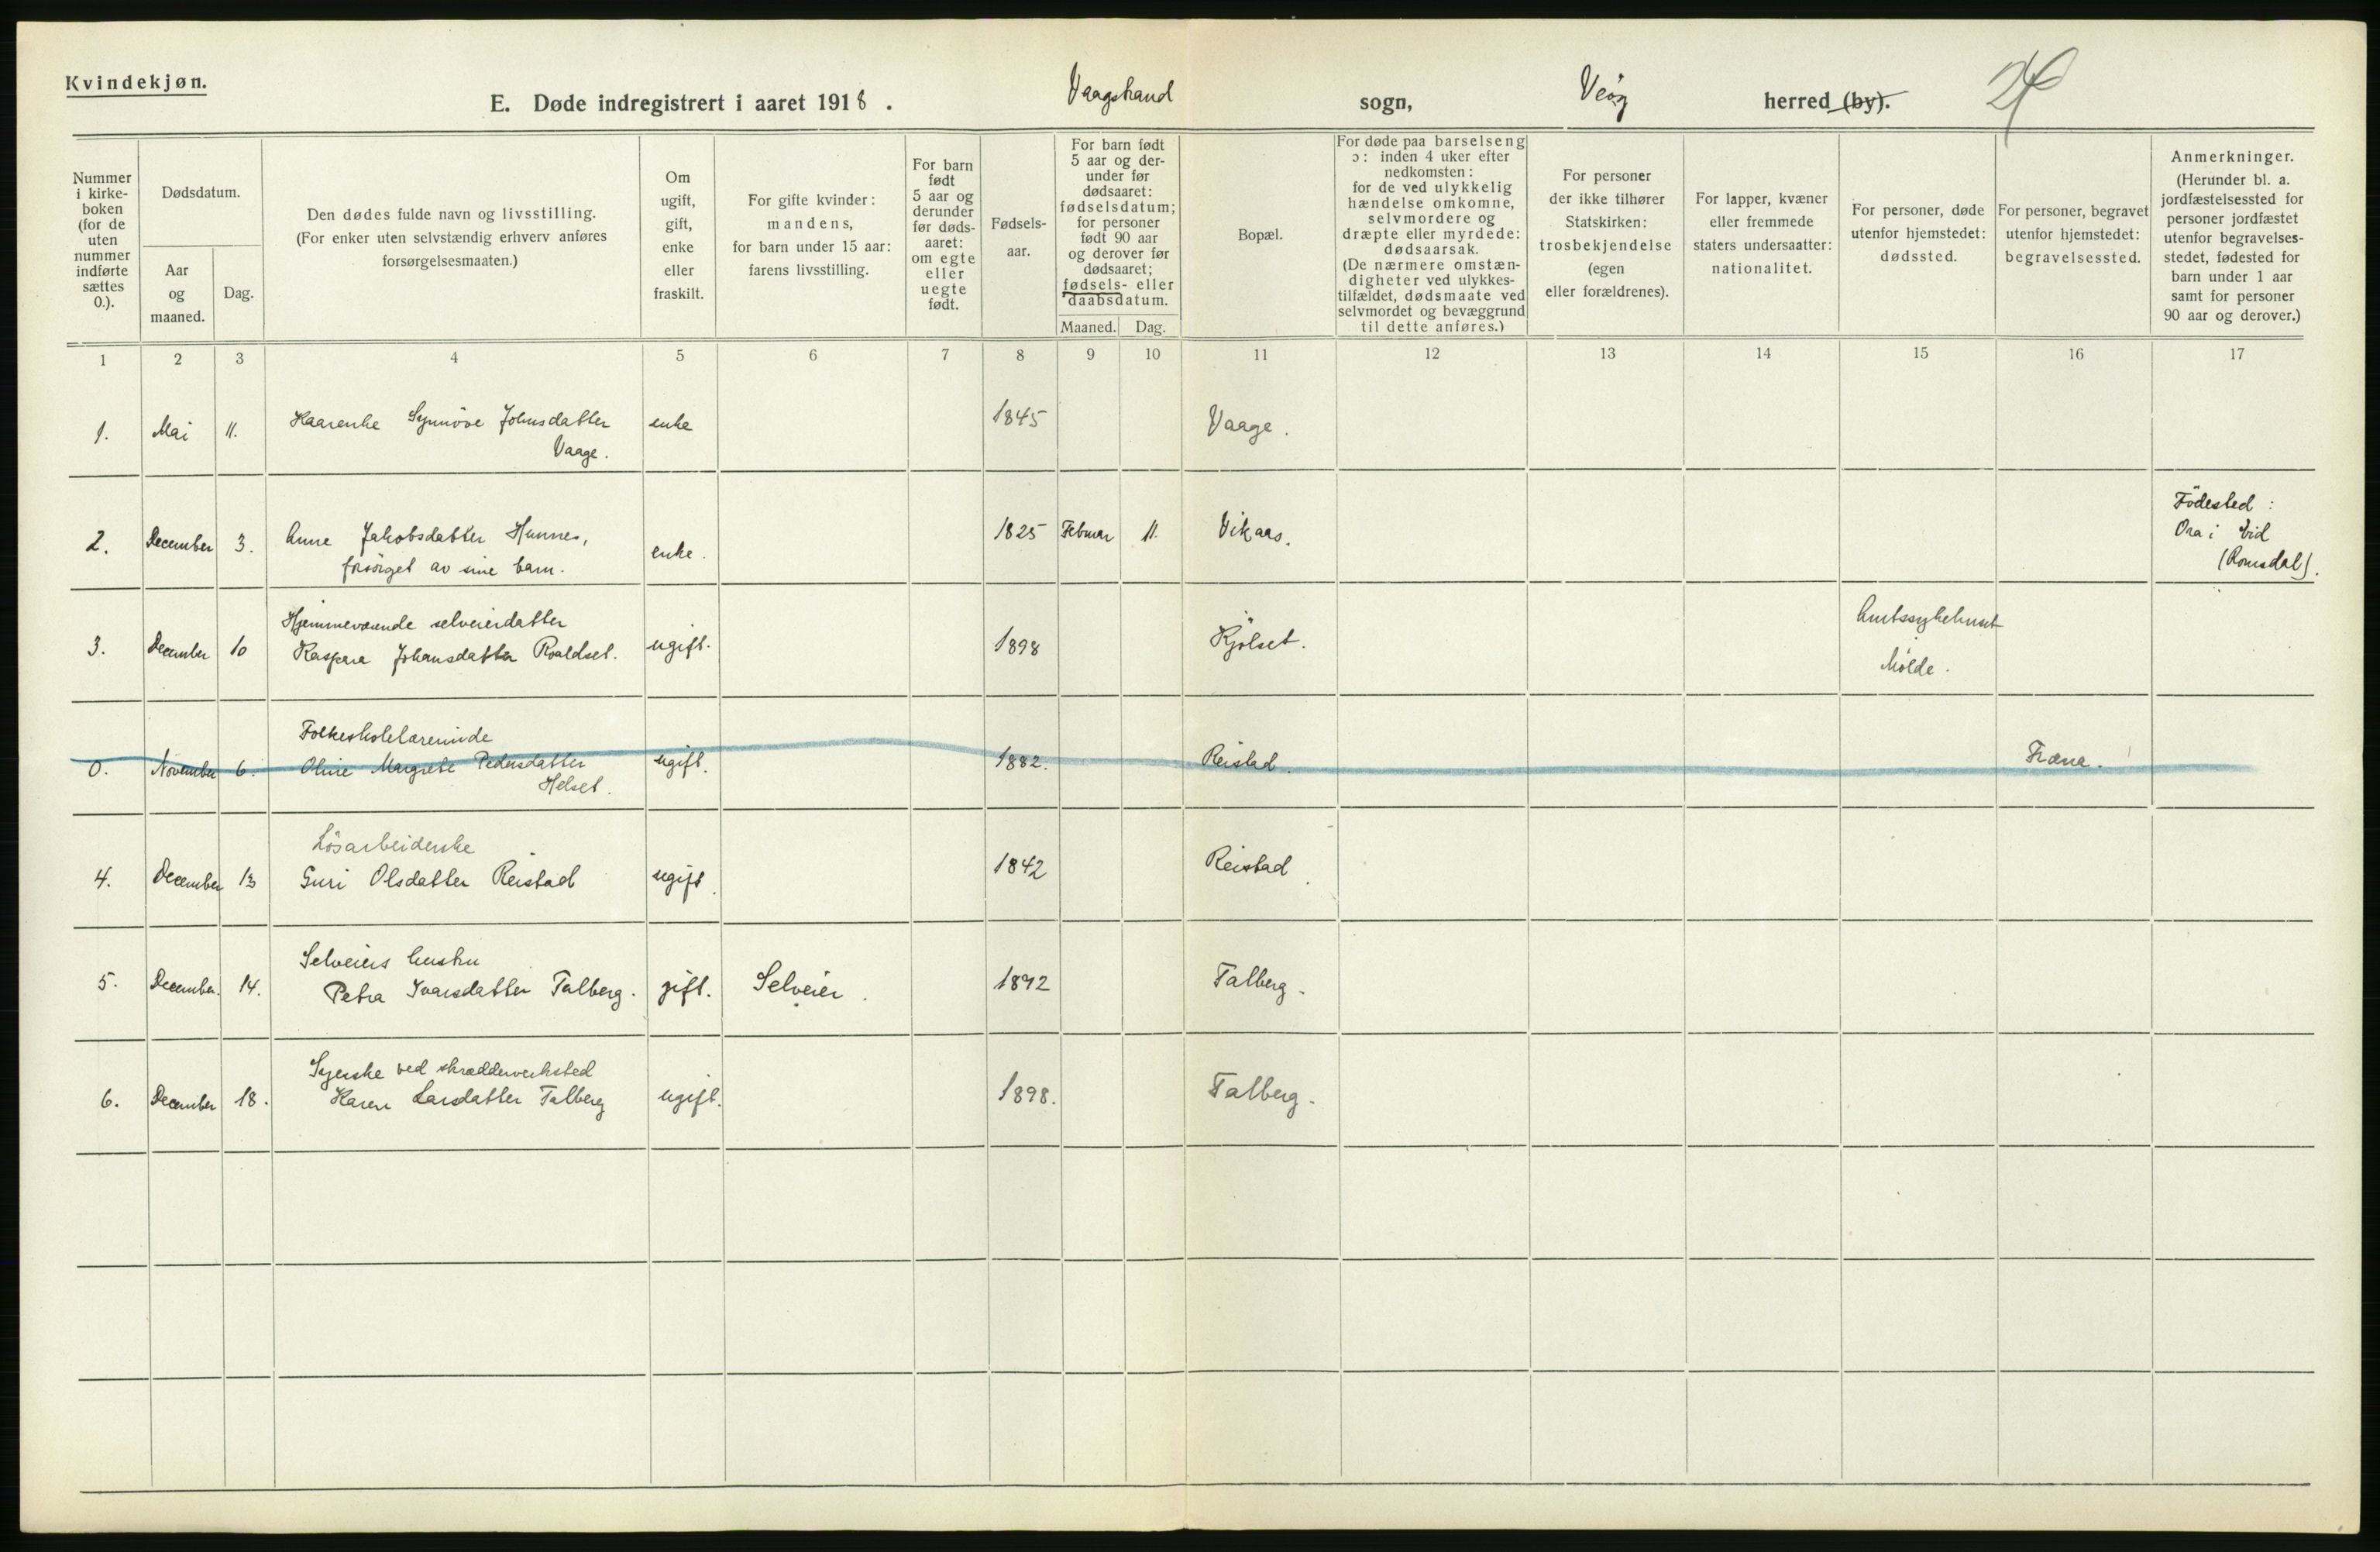 Kvindekjøn.
E. Døde indregistrert i aaret 1918. Vaagstrand sogn, Veøy herred (by).
Nummer
i kirke-
boken
(for de
uten
nummer
indførte
sættes
0.).
Dødsdatum.
Aar
og
maaned.
Dag.
Den dødes fulde navn og livsstilling.
(For enker uten selvstændig erhverv anføres
forsørgelsesmaaten.)
Om
ugift,
gift,
enke
eller
fraskilt.
For gifte kvinder:
mandens,
for barn under 15 aar:
farens livsstilling.
For barn
født
5 aar og
derunder
før døds-
aaret:
om egte
eller
uegte
født.
Fødsels-
aar.
For barn født
5 aar og der-
under før
dødsaaret:
fødselsdatum;
for personer
født 90 aar
og derover før
dødsaaret;
fødsels- eller
daabsdatum.
Maaned. Dag.
Bopæl.
For døde paa barselseng
ɔ: inden 4 uker efter
nedkomsten:
for de ved ulykkelig
hændelse omkomne,
selvmordere og
dræpte eller myrdede:
dødsaarsak.
(De nærmere omstæn-
digheter ved ulykkes-
tilfældet, dødsmaate ved
selvmordet og bevæggrund
til dette anføres.)
For personer
der ikke tilhører
Statskirken:
trosbekjendelse
(egen
eller forældrenes).
For lapper, kvæner
eller fremmede
staters undersaatter:
nationalitet.
For personer, døde
utenfor hjemstedet:
dødssted.
For personer, begravet
utenfor hjemstedet:
begravelsessted.
Anmerkninger.
(Herunder bl. a.
jordfæstelsessted for
personer jordfæstet
utenfor begravelses-
stedet, fødested for
barn under 1 aar
samt for personer
90 aar og derover.)
1 2 3 4 5 6 7 8 9 10 11 12 13 14 15 16 17
1. Mai 11. Kaarenke Synnöve Johnsdatter enke 1845 Vaage.
Vaage.
2. December 3. Anne Jakobsdatter Hunnes, enke. 1825 Februar 11. Vikaas. Födested:
forsörget av sine barn. Ora i Eid
(Romsdal).
Hjemmeværende selveierdatter
3. December 10 Kaspara Johansdatter Roaldset. ugift. 1898 Kjölset. Amtssykehuset
Molde.
Folkeskolelærerinde
0. November 6. Oline Margrete Pedersdatter ugift. 1882. Reistad. Fræna.
Helset.
Lösarbeiderske
4. December 13 Guri Olsdatter Reistad ugift. 1842 Reistad.
Selveiers hustru
5. December. 14. Petra Ivarsdatter Talberg. gift. Selveier. 1892 Talberg.
Syerske ved skrædderverksted
6. December 18. Karen Larsdatter Talberg ugift. 1898. Talberg.